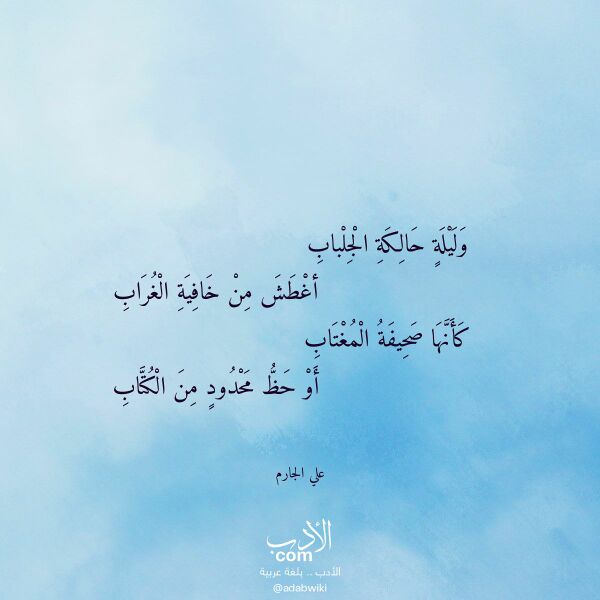 وَلَيْلَةٍ حَالِكَةِ الْجِلْبابِ
أغْطَشَ مِنْ خَافِيَةِ الْغُرَابِ
كَأَنَّهَا صَحِيفَةُ الْمُغْتَابِ
أَوْ حَظُّ مَحْدُودٍ مِنَ الْكُتَّابِ
علي الجارم
الأدب
com
الأدب .. بلغة عربية
@adabwiki